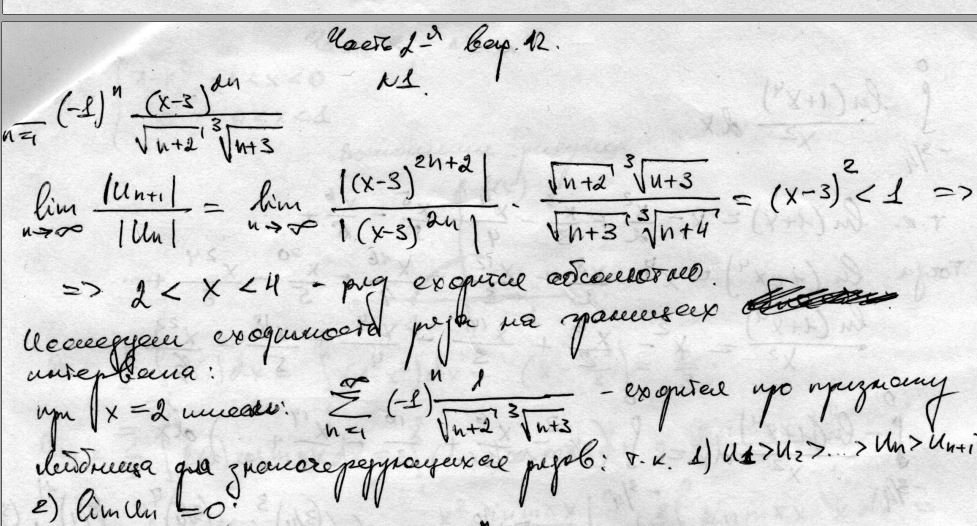 Часть 2-я вар. 12.
№1.
n=1 (-1)^n (x-3)^{2n} / (√(n+2) ∛(n+3))
lim n→∞ |U_{n+1}| / |U_n| = lim n→∞ |(x-3)^{2n+2}| / |(x-3)^{2n}| · √(n+2) ∛(n+3) / (√(n+3) ∛(n+4)) = (x-3)^2 < 1 =>
=> 2 < x < 4 - ряд сходится абсолютно.
Исследуем сходимость ряда на границах
интервала:
при x = 2 имеем: ∑_{n=1}^{∞} (-1)^n 1 / (√(n+2) ∛(n+3)) - сходится по признаку
Лейбница для знакочередующихся рядов: т.к. 1) U_1 > U_2 > ... > U_n > U_{n+1}
2) lim U_n = 0.